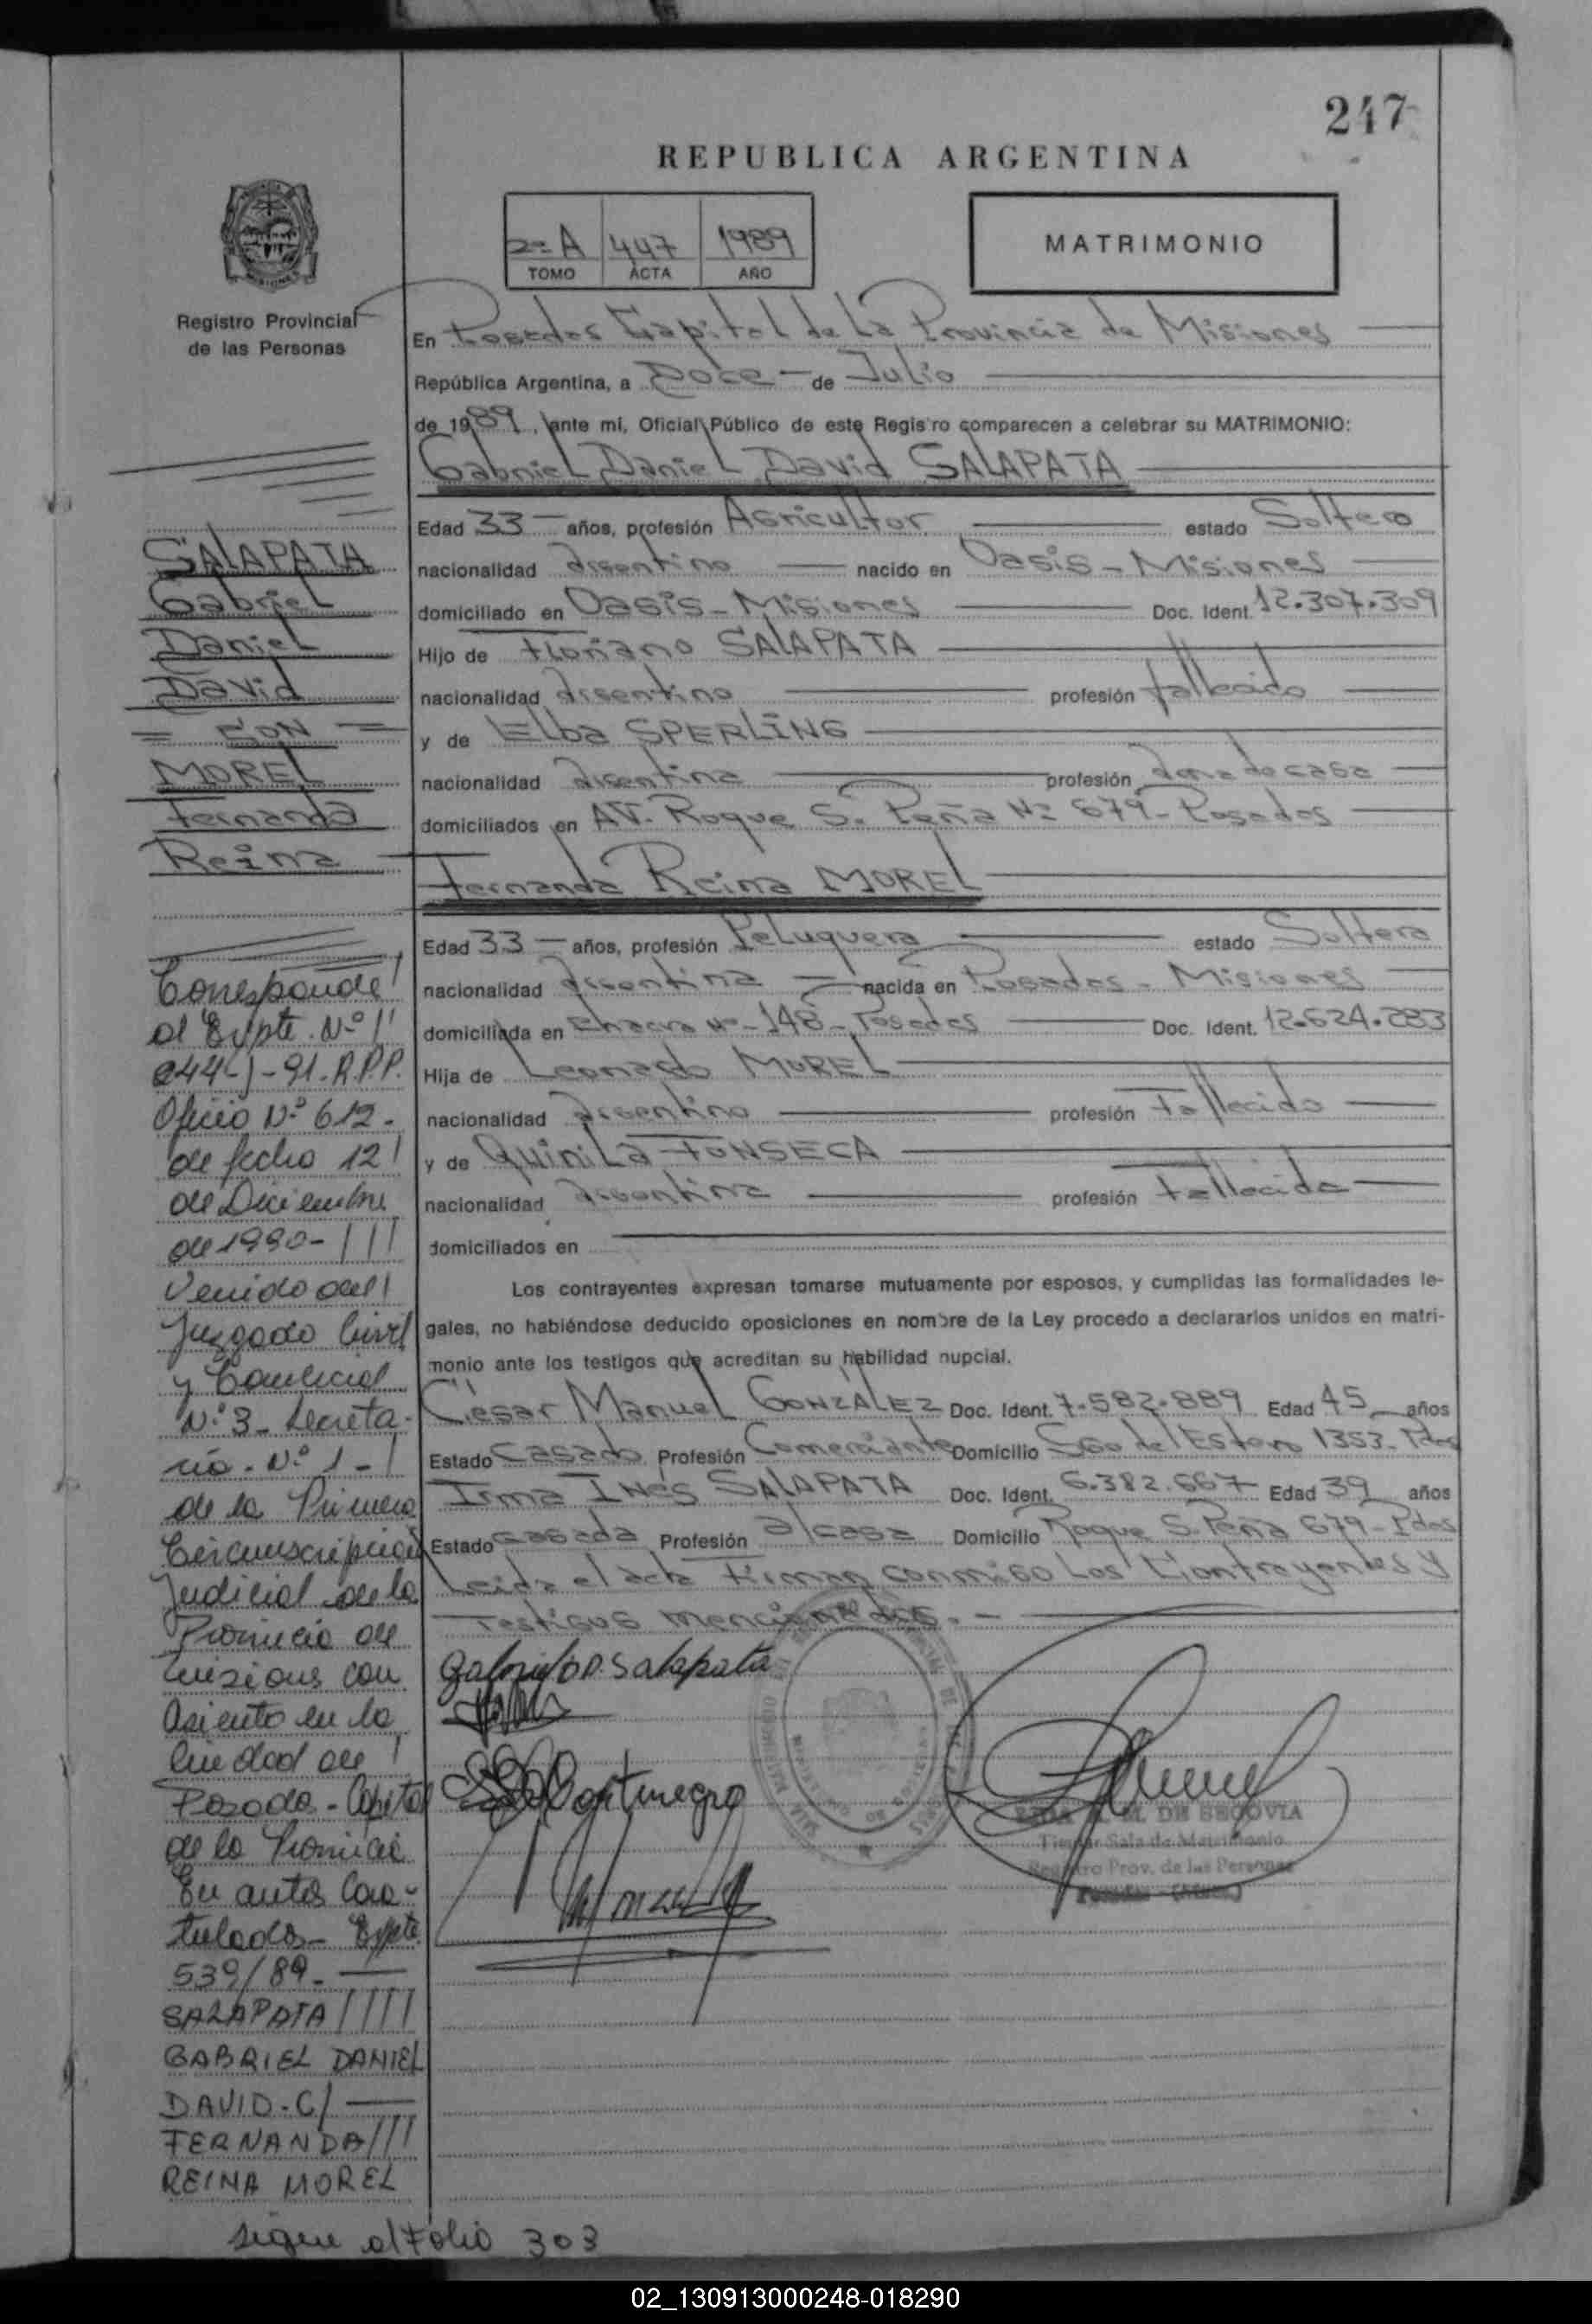 247
REPUBLICA ARGENTINA
2º A 447 1989
TOMO ACTA AÑO
MATRIMONIO
Registro Provincial
de las Personas
En Posadas Capital de La Provincia de Misiones
República Argentina, a Doce de Julio
de 1989, ante mí, Oficial Público de este Registro comparecen a celebrar su MATRIMONIO:
Gabriel Daniel David SALAPATA
Edad 33 años, profesión Agricultor estado Soltero
nacionalidad Argentino nacido en Oasis - Misiones
domiciliado en Oasis - Misiones Doc. Ident. 12.307.309
Hijo de Floriano SALAPATA
nacionalidad Argentino profesión fallecido
y de Elba SPERLING
nacionalidad Argentina profesión ama de casa
domiciliados en AV. Roque S. Peña Nº 679 - Posadas
Fernanda Reina MOREL
Edad 33 años, profesión Peluquera estado Soltera
nacionalidad Argentina nacida en Posadas - Misiones
domiciliada en Chacra Nº 148 - Posadas Doc. Ident. 12.624.283
Hija de Leonardo MOREL
nacionalidad Argentino profesión Fallecido
y de Quinila FONSECA
nacionalidad Argentina profesión Fallecida
domiciliados en
Los contrayentes expresan tomarse mutuamente por esposos, y cumplidas las formalidades le-
gales, no habiéndose deducido oposiciones en nombre de la Ley procedo a declararlos unidos en matri-
monio ante los testigos que acreditan su habilidad nupcial.
César Manuel GONZALEZ Doc. Ident. 7.582.889 Edad 45 años
Estado Casado Profesión Comerciante Domicilio Sgo del Estero 1353 - Pdas
Irma Inés SALAPATA Doc. Ident. 6.382.667 Edad 39 años
Estado Casada Profesión a/casa Domicilio Roque S. Peña 679 - Pdas
Leida el acta Firman conmigo Los Contrayentes y
Testigos mencionados. -
Gabriel D D. Salapata
DE SEGOVIA
Titular Sala de Matrimonio
Registro Prov. de las Personas
SALAPATA
Gabriel
Daniel
David
= CON =
MOREL
Fernanda
Reina
Corresponde
al Expte. Nº
244-J-91. R.P.P.
Oficio Nº 612 -
de fecha 12
de Diciembre
de 1990 -
Venido del
Juzgado Civil
y Comercial
Nº 3 - Secreta-
ría - Nº 1 -
de la Primera
Circunscripción
Judicial de la
Provincia de
Misiones con
Asiento en la
Ciudad de
Posadas - Capital
de la Provincia
En autos Cara-
tulados - Expte
539/89 -
SALAPATA
GABRIEL DANIEL
DAVID - C/
FERNANDA
REINA MOREL
sigue al Folio 303
02_130913000248-018290